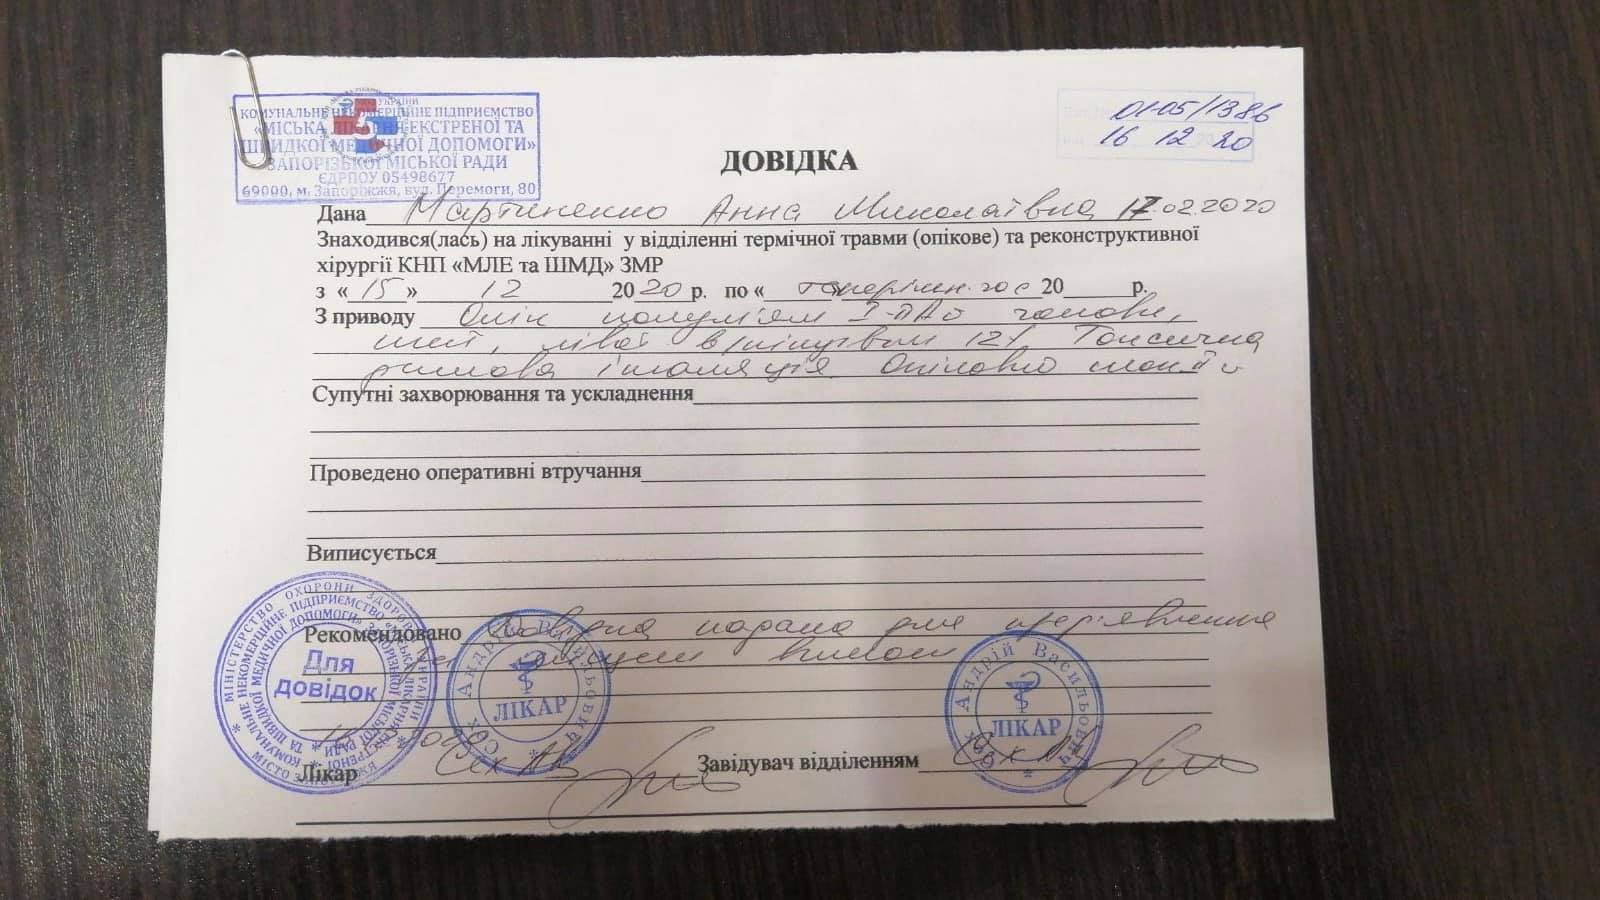 УКРАЇНИ
КОМУНАЛЬНЕ НЕКОМЕРЦІЙНЕ ПІДПРИЄМСТВО
«МІСЬКА ЛІКАРНЯ ЕКСТРЕНОЇ ТА
ШВИДКОЇ МЕДИЧНОЇ ДОПОМОГИ»
ЗАПОРІЗЬКОЇ МІСЬКОЇ РАДИ
ЄДРПОУ 05498677
69000, м. Запоріжжя, вул. Перемоги, 80
01-05/1386
16 12 20
ДОВІДКА
Дана Мартиненко Анна Миколаївна 17.02.2020
Знаходився(лась) на лікуванні у відділенні термічної травми (опікове) та реконструктивної
хірургії КНП «МЛЕ та ШМД» ЗМР
з «15» 12 2020 р. по « » теперішн. час 20 р.
З приводу Опік полум'ям I-IIАст голови,
шиї, лівої 12% Токсична
димова інгаляція. Опіковий шок II
Супутні захворювання та ускладнення
Проведено оперативні втручання
Виписується
Рекомендовано Довідка дана для пред'явлення
за місцем вимоги
Лікар Сох АВ
Завідувач відділенням Сох АВ
МІНІСТЕРСТВО ОХОРОНИ ЗДОРОВ'Я УКРАЇНИ
МІСТО ЗАПОРІЖЖЯ
КОМУНАЛЬНЕ НЕКОМЕРЦІЙНЕ ПІДПРИЄМСТВО «МІСЬКА ЛІКАРНЯ ЕКСТРЕНОЇ
ТА ШВИДКОЇ МЕДИЧНОЇ ДОПОМОГИ» ЗАПОРІЗЬКОЇ МІСЬКОЇ РАДИ
Для
довідок
Сох Андрій Васильович
ЛІКАР
Сох Андрій Васильович
ЛІКАР